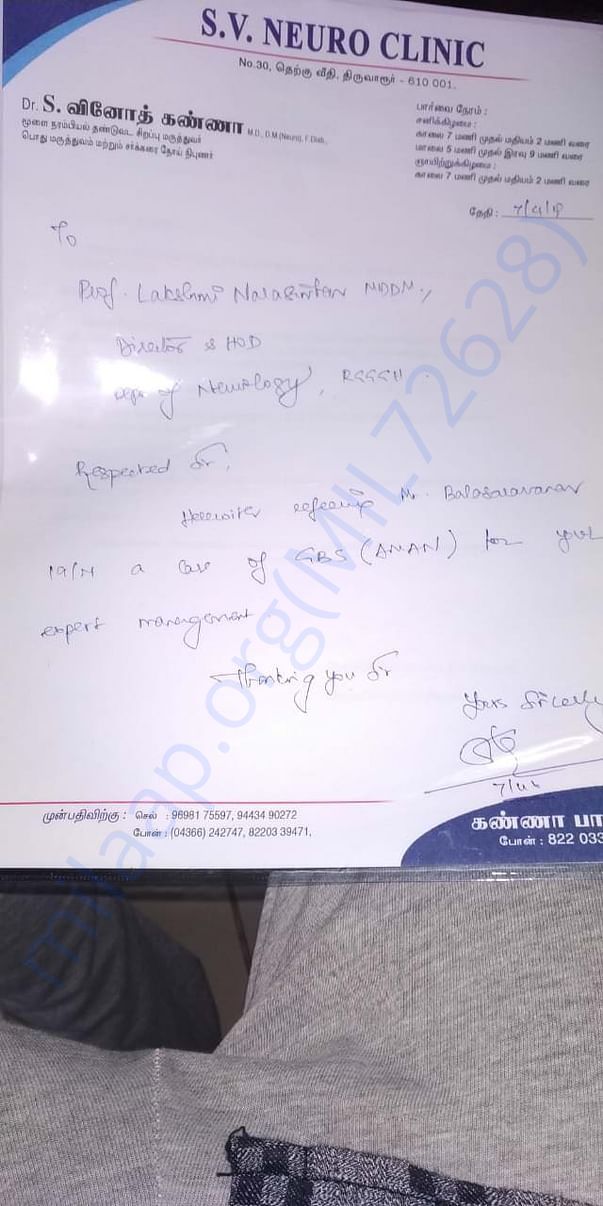 S.V. NEURO CLINIC
No.30, தெற்கு வீதி, திருவாரூர் - 610 001.
Dr. S. வினோத் கண்ணா M.D., D.M (Neuro), F.Diab.,
மூளை நரம்பியல் தண்டுவட சிறப்பு மருத்துவர்
பொது மருத்துவம் மற்றும் சர்க்கரை நோய் நிபுணர்
பார்வை நேரம் :
சனிக்கிழமை :
காலை 7 மணி முதல் மதியம் 2 மணி வரை
மாலை 5 மணி முதல் இரவு 9 மணி வரை
ஞாயிற்றுக்கிழமை :
காலை 7 மணி முதல் மதியம் 2 மணி வரை
தேதி : 7/4/19
To
Prof. Lakshmi Narasimhan MDDM.,
Director & HOD
of Neurology, RGGGH.
Respected Sir,
Mr. Balasaravanan
19/M a case of GBS (AMAN) for your
expert management
Thanking you Sir
Yours Sincerely
முன்பதிவிற்கு : செல் : 96981 75597, 94434 90272
போன் : (04366) 242747, 82203 39471.
கண்ணா பா
போன் : 822 033
milaap.org(MIL726628)